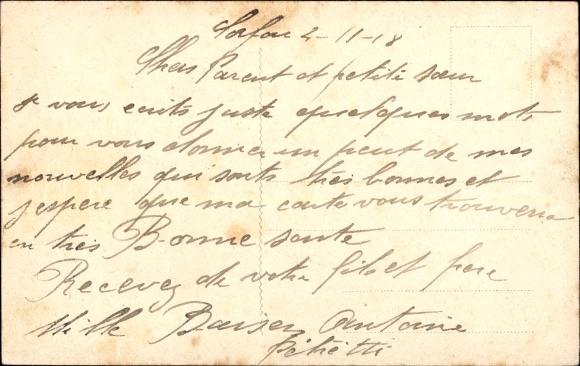 2-11-18
Chers Parent et petite sœur
Je vous ecrits juste quelques mots
pour vous donner un peut de mes
nouvelles qui sonts très bonnes et
j'espere que ma carte vous trouvera
en très Bonne sante
Recevez de votre fils et frere
Mille Baiser Antoine